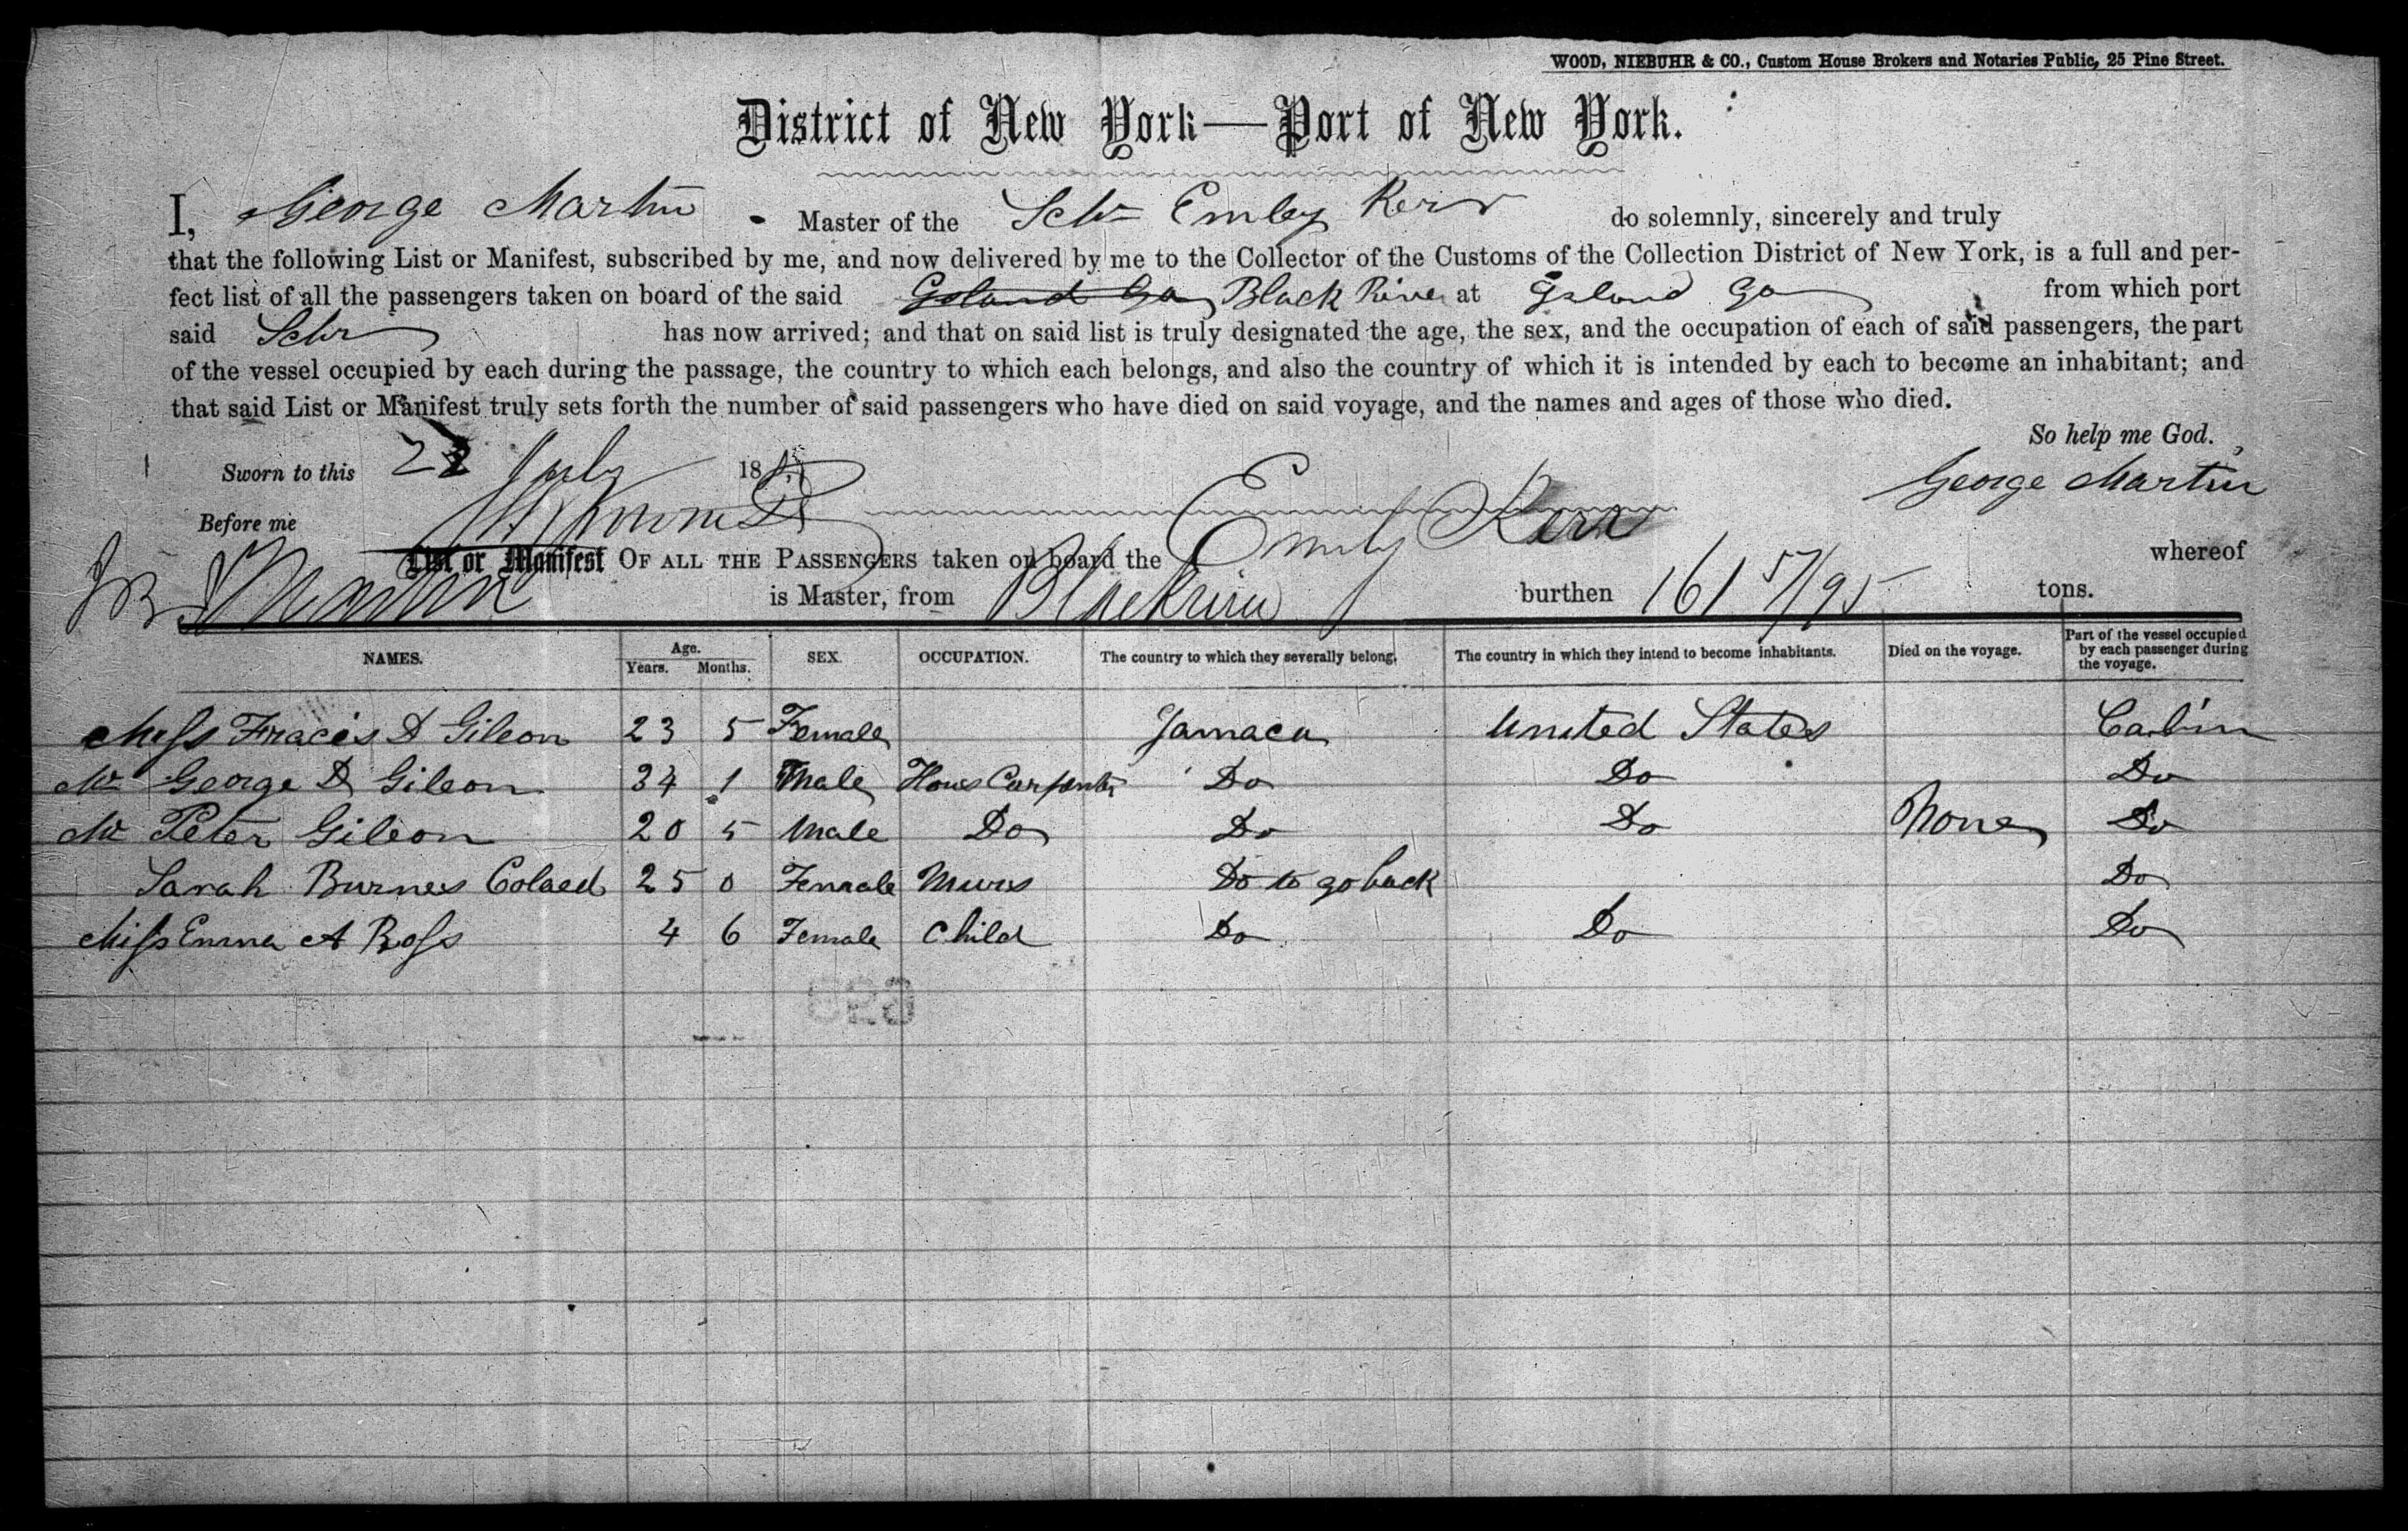 WOOD, NIEBUHR & CO., Custom House Brokers and Notaries Public, 25 Pine Street.
District of New York—Port of New York.
I, George Martin Master of the Schr Emley Kerr do solemnly, sincerely and truly
that the following List or Manifest, subscribed by me, and now delivered by me to the Collector of the Customs of the Collection District of New York, is a full and per-
fect list of all the passengers taken on board of the said Black River at from which port
said Schr has now arrived; and that on said list is truly designated the age, the sex, and the occupation of each of said passengers, the part
of the vessel occupied by each during the passage, the country to which each belongs, and also the country of which it is intended by each to become an inhabitant; and
that said List or Manifest truly sets forth the number of said passengers who have died on said voyage, and the names and ages of those who died.
So help me God.
Sworn to this July 18
George Martin
Before me
List or Manifest OF ALL THE PASSENGERS taken on board the Emily Kerr whereof
Martin is Master, from Blackriver burthen 161 57/95 tons.
NAMES. Age. Years. Months. SEX. OCCUPATION. The country to which they severally belong. The country in which they intend to become inhabitants. Died on the voyage. Part of the vessel occupied by each passenger during the voyage.
Miss Fracis D Gileon 23 5 Female Jamaca United States Cabin
Mr George D Gileon 34 1 Male Hous Carpenter Do Do Do
Mr Peter Gileon 20 5 Male Do Do Do None Do
Sarah Burnes Colaed 25 0 Female Nurs Do to go back Do
Miss Emma A Ross 4 6 Female Child Do Do Do